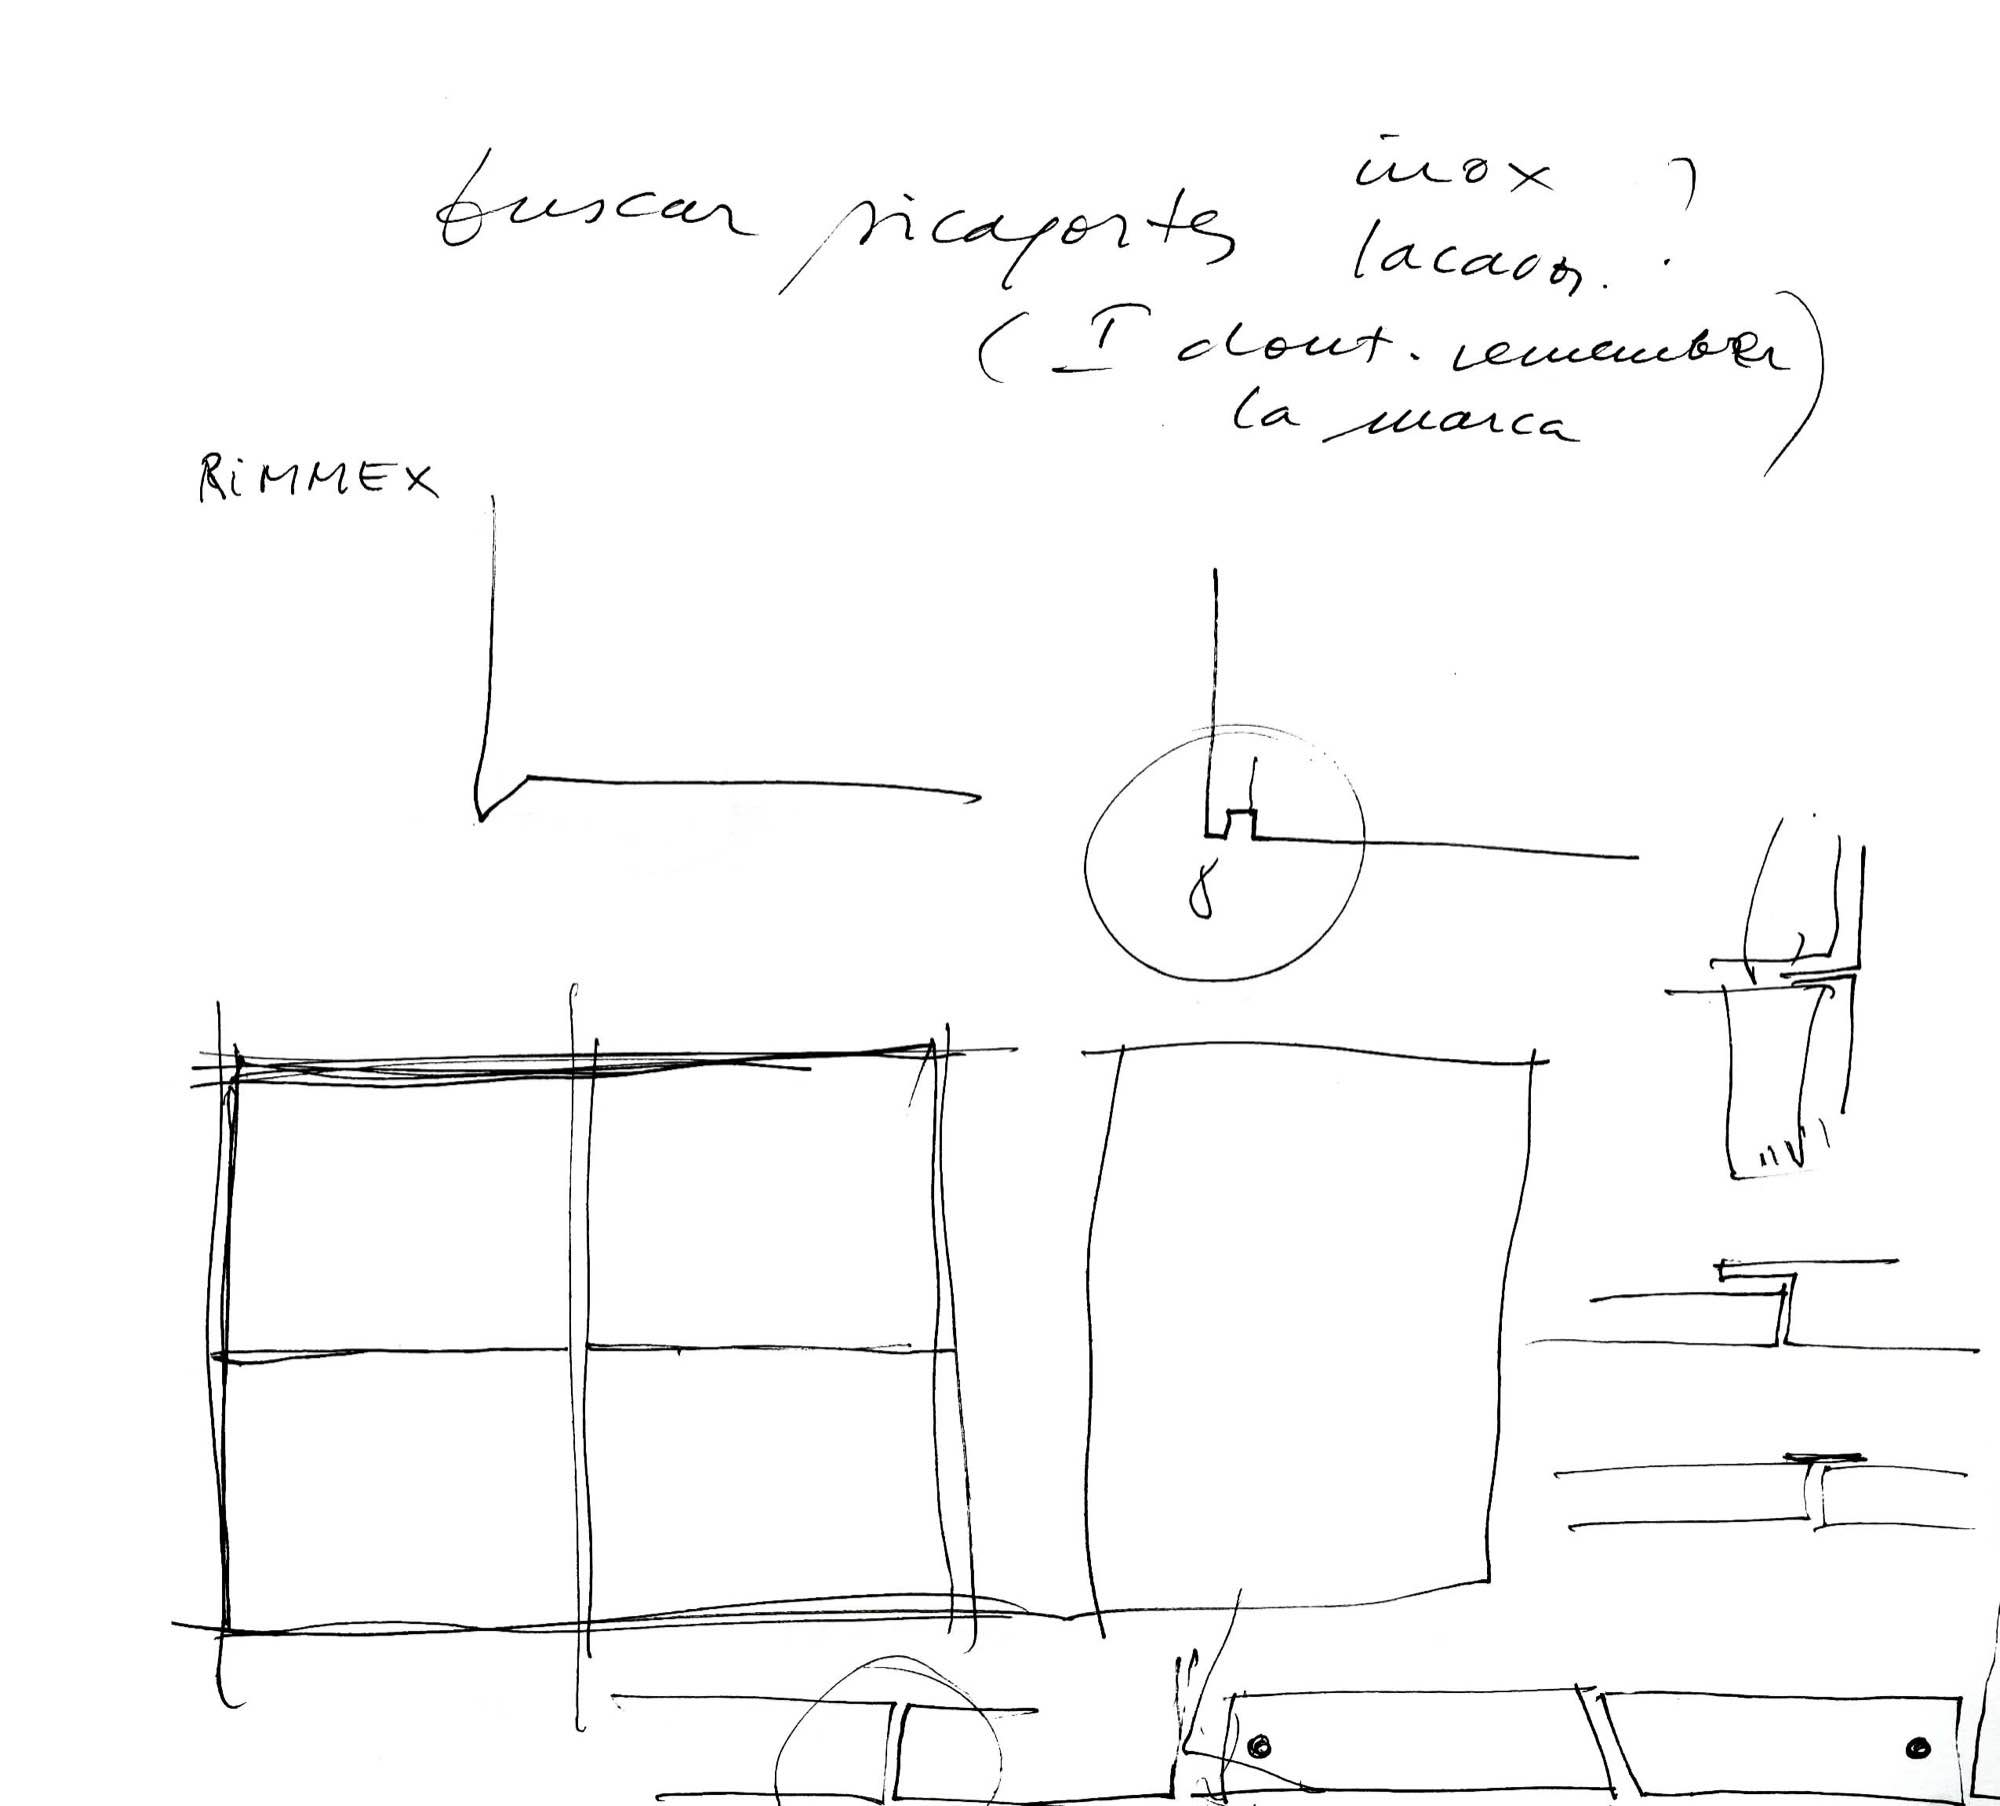 buscar picaportes inox
lacados. ?
(I dont. remember
la marca)
RiMMEX